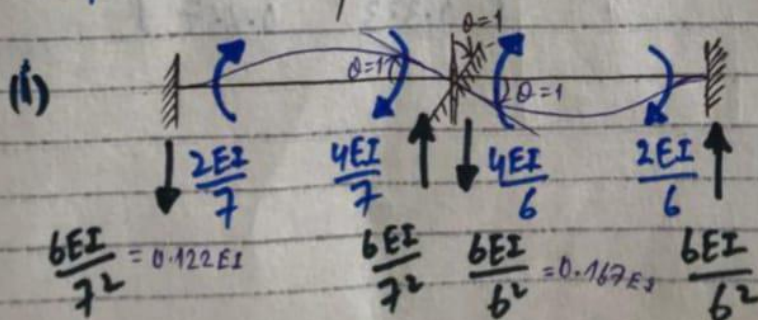 θ=1
(i) θ=1 θ=1
2EI/7 4EI/7 4EI/6 2EI/6
6EI/7² = 0.122EI 6EI/7² 6EI/6² = 0.167EI 6EI/6²